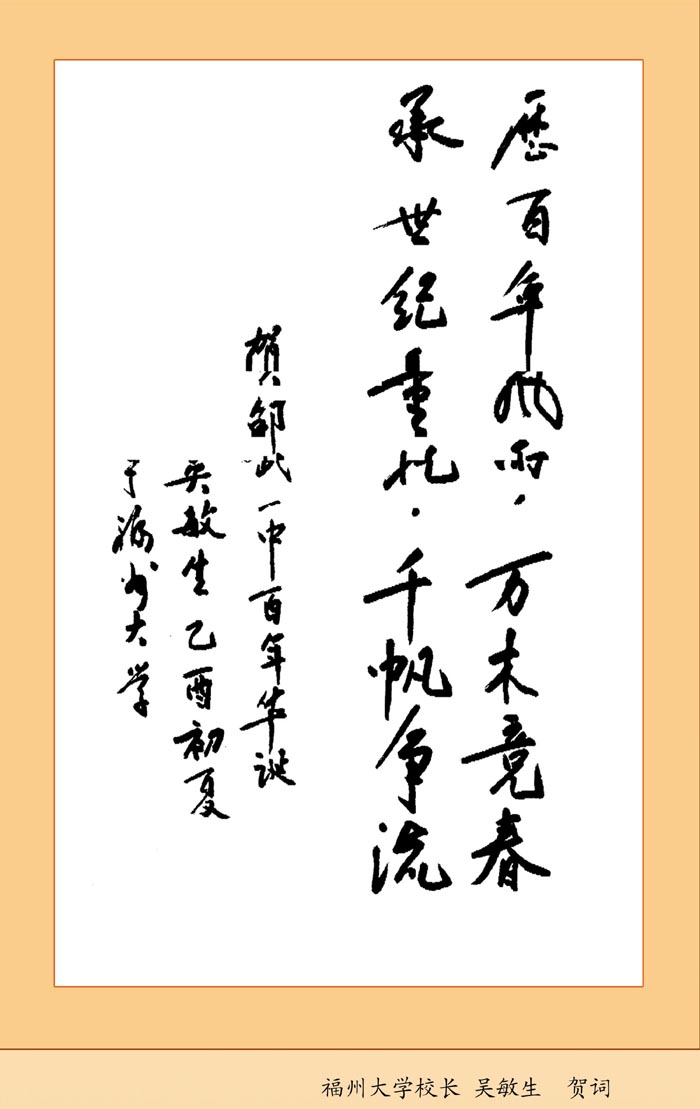 历百年风雨，万木竞春
承世纪重托，千帆争流
贺邵武一中百年华诞
吴敏生乙酉初夏
于福州大学
福州大学校长 吴敏生 贺词